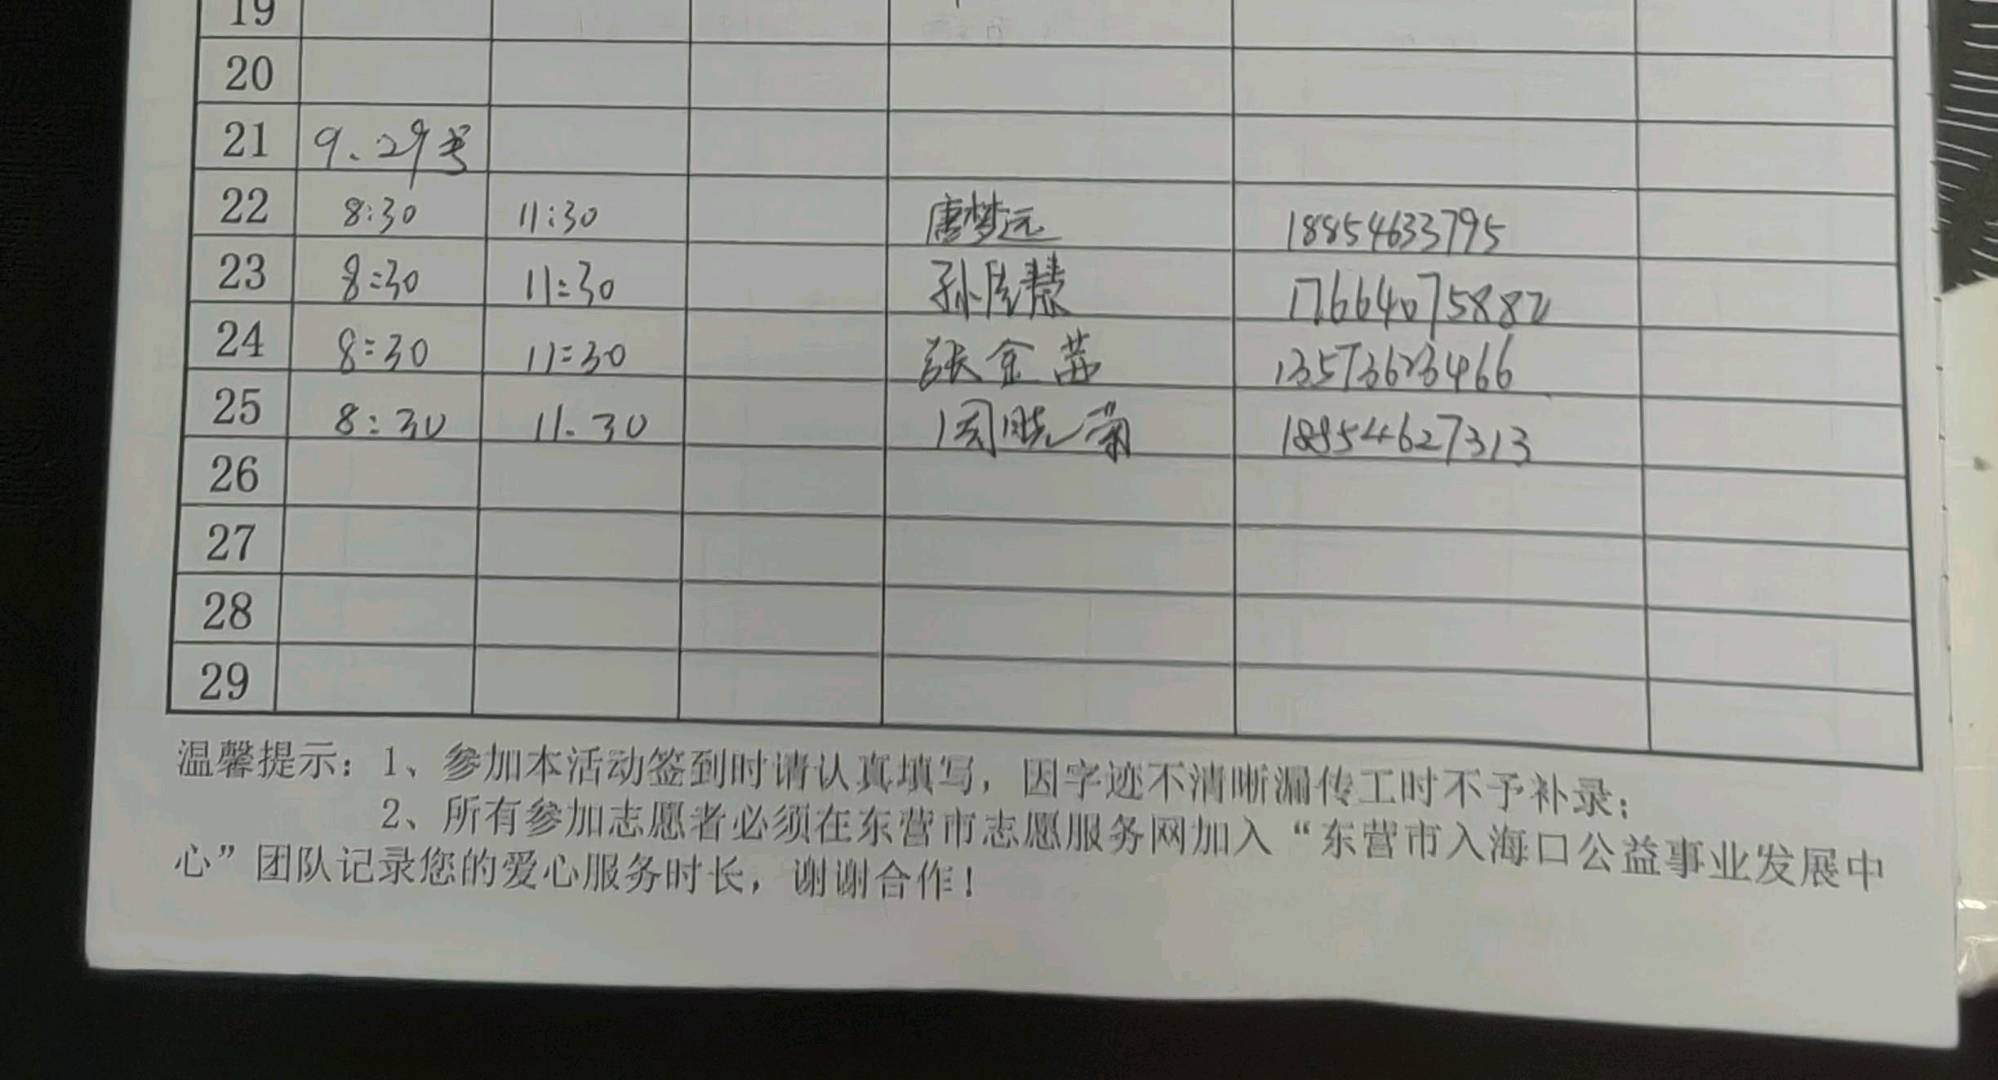 19
20
21 9.29号
22 8:30 11:30 唐梦远 18854633795
23 8:30 11:30 孙 慧 17664075882
24 8:30 11:30 张金茜 13573623466
25 8:30 11.30 周晓菊 18854627313
26
27
28
29
温馨提示：1、参加本活动签到时请认真填写，因字迹不清晰漏传工时不予补录；
2、所有参加志愿者必须在东营市志愿服务网加入“东营市入海口公益事业发展中
心”团队记录您的爱心服务时长，谢谢合作！